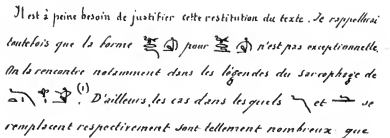 Il est à peine besoin de justifier cette restitution du texte. Je rappellerai
toutefois que la forme pour n'est pas exceptionnelle.
On la rencontre notamment dans les légendes du sarcophage de
(1). D'ailleurs, les cas dans lesquels et se
remplacent respectivement sont tellement nombreux que